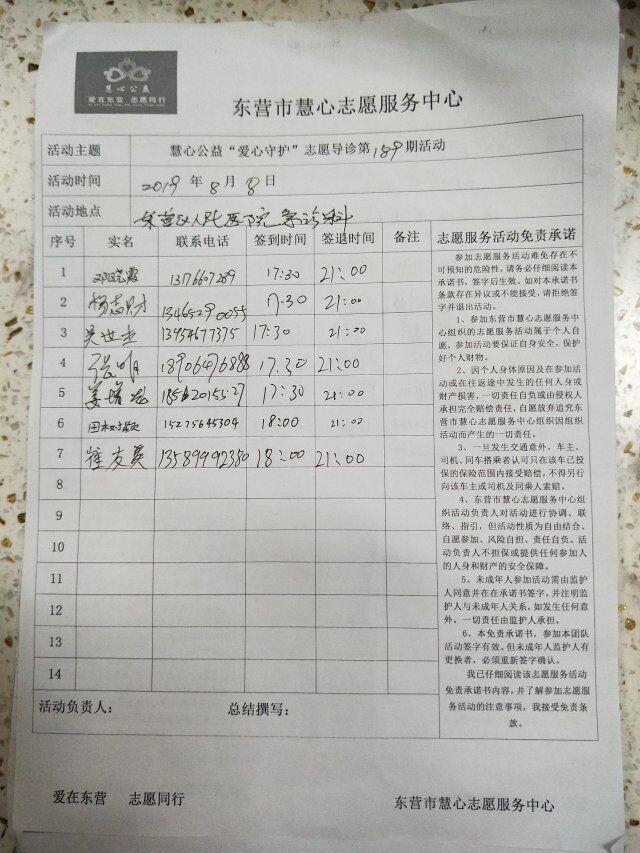 慧心公益
爱在东营 志愿同行
东营市慧心志愿服务中心
活动主题 慧心公益“爱心守护”志愿导诊第189期活动
活动时间 2019 年 8 月 8 日
活动地点 东营区人民医院 急诊科
序号 实名 联系电话 签到时间 签退时间 备注
1 邓晓霞 17:30 21:00
2 杨志财 13465290055 17:30 21:00
3 吴世杰 13954677375 17:30 21:00
4 张明 18906476888 17.30 21:00
5 姜 18562015527 17:30 21:00
6 田 15275645304 18:00 21:00
7 崔友英 13589992380 18:00 21:00
8
9
10
11
12
13
14
活动负责人: 总结撰写:
志愿服务活动免责承诺
参加志愿服务活动难免存在不
可预知的危险性,请务必仔细阅读本
承诺书,签字后生效。如对本承诺书
条款存在异议或不能接受,请拒绝签
字并退出活动。
1、参加东营市慧心志愿服务中
心组织的志愿服务活动属于个人自
愿,参加活动要保证自身安全,保护
好个人财物。
2、因个人身体原因及在参加活
动或在往返途中发生的任何人身或
财产损害,一切责任自负或由侵权人
承担完全赔偿责任,自愿放弃追究东
营市慧心志愿服务中心组织因组织
活动而产生的一切责任。
3、一旦发生交通意外,车主、
司机、同车搭乘者认可只在该车已投
保的保险范围内接受赔偿,不得另行
向该车主或司机及同乘人索赔。
4、东营市慧心志愿服务中心组
织活动负责人对活动进行协调、联
络、指引,但活动性质为自由结合、
自愿参加、风险自担、责任自负。活
动负责人不担保或提供任何参加人
的人身和财产的安全保障。
5、未成年人参加活动需由监护
人同意并在在承诺书签字,并注明监
护人与未成年人关系,如发生任何意
外,一切责任由监护人承担。
6、本免责承诺书,参加本团队
活动签字有效。但未成年人监护人有
更换者,必须重新签字确认。
我已仔细阅读该志愿服务活动
免责承诺书内容,并了解参加志愿服
务活动的注意事项,我接受免责条
款。
爱在东营 志愿同行 东营市慧心志愿服务中心